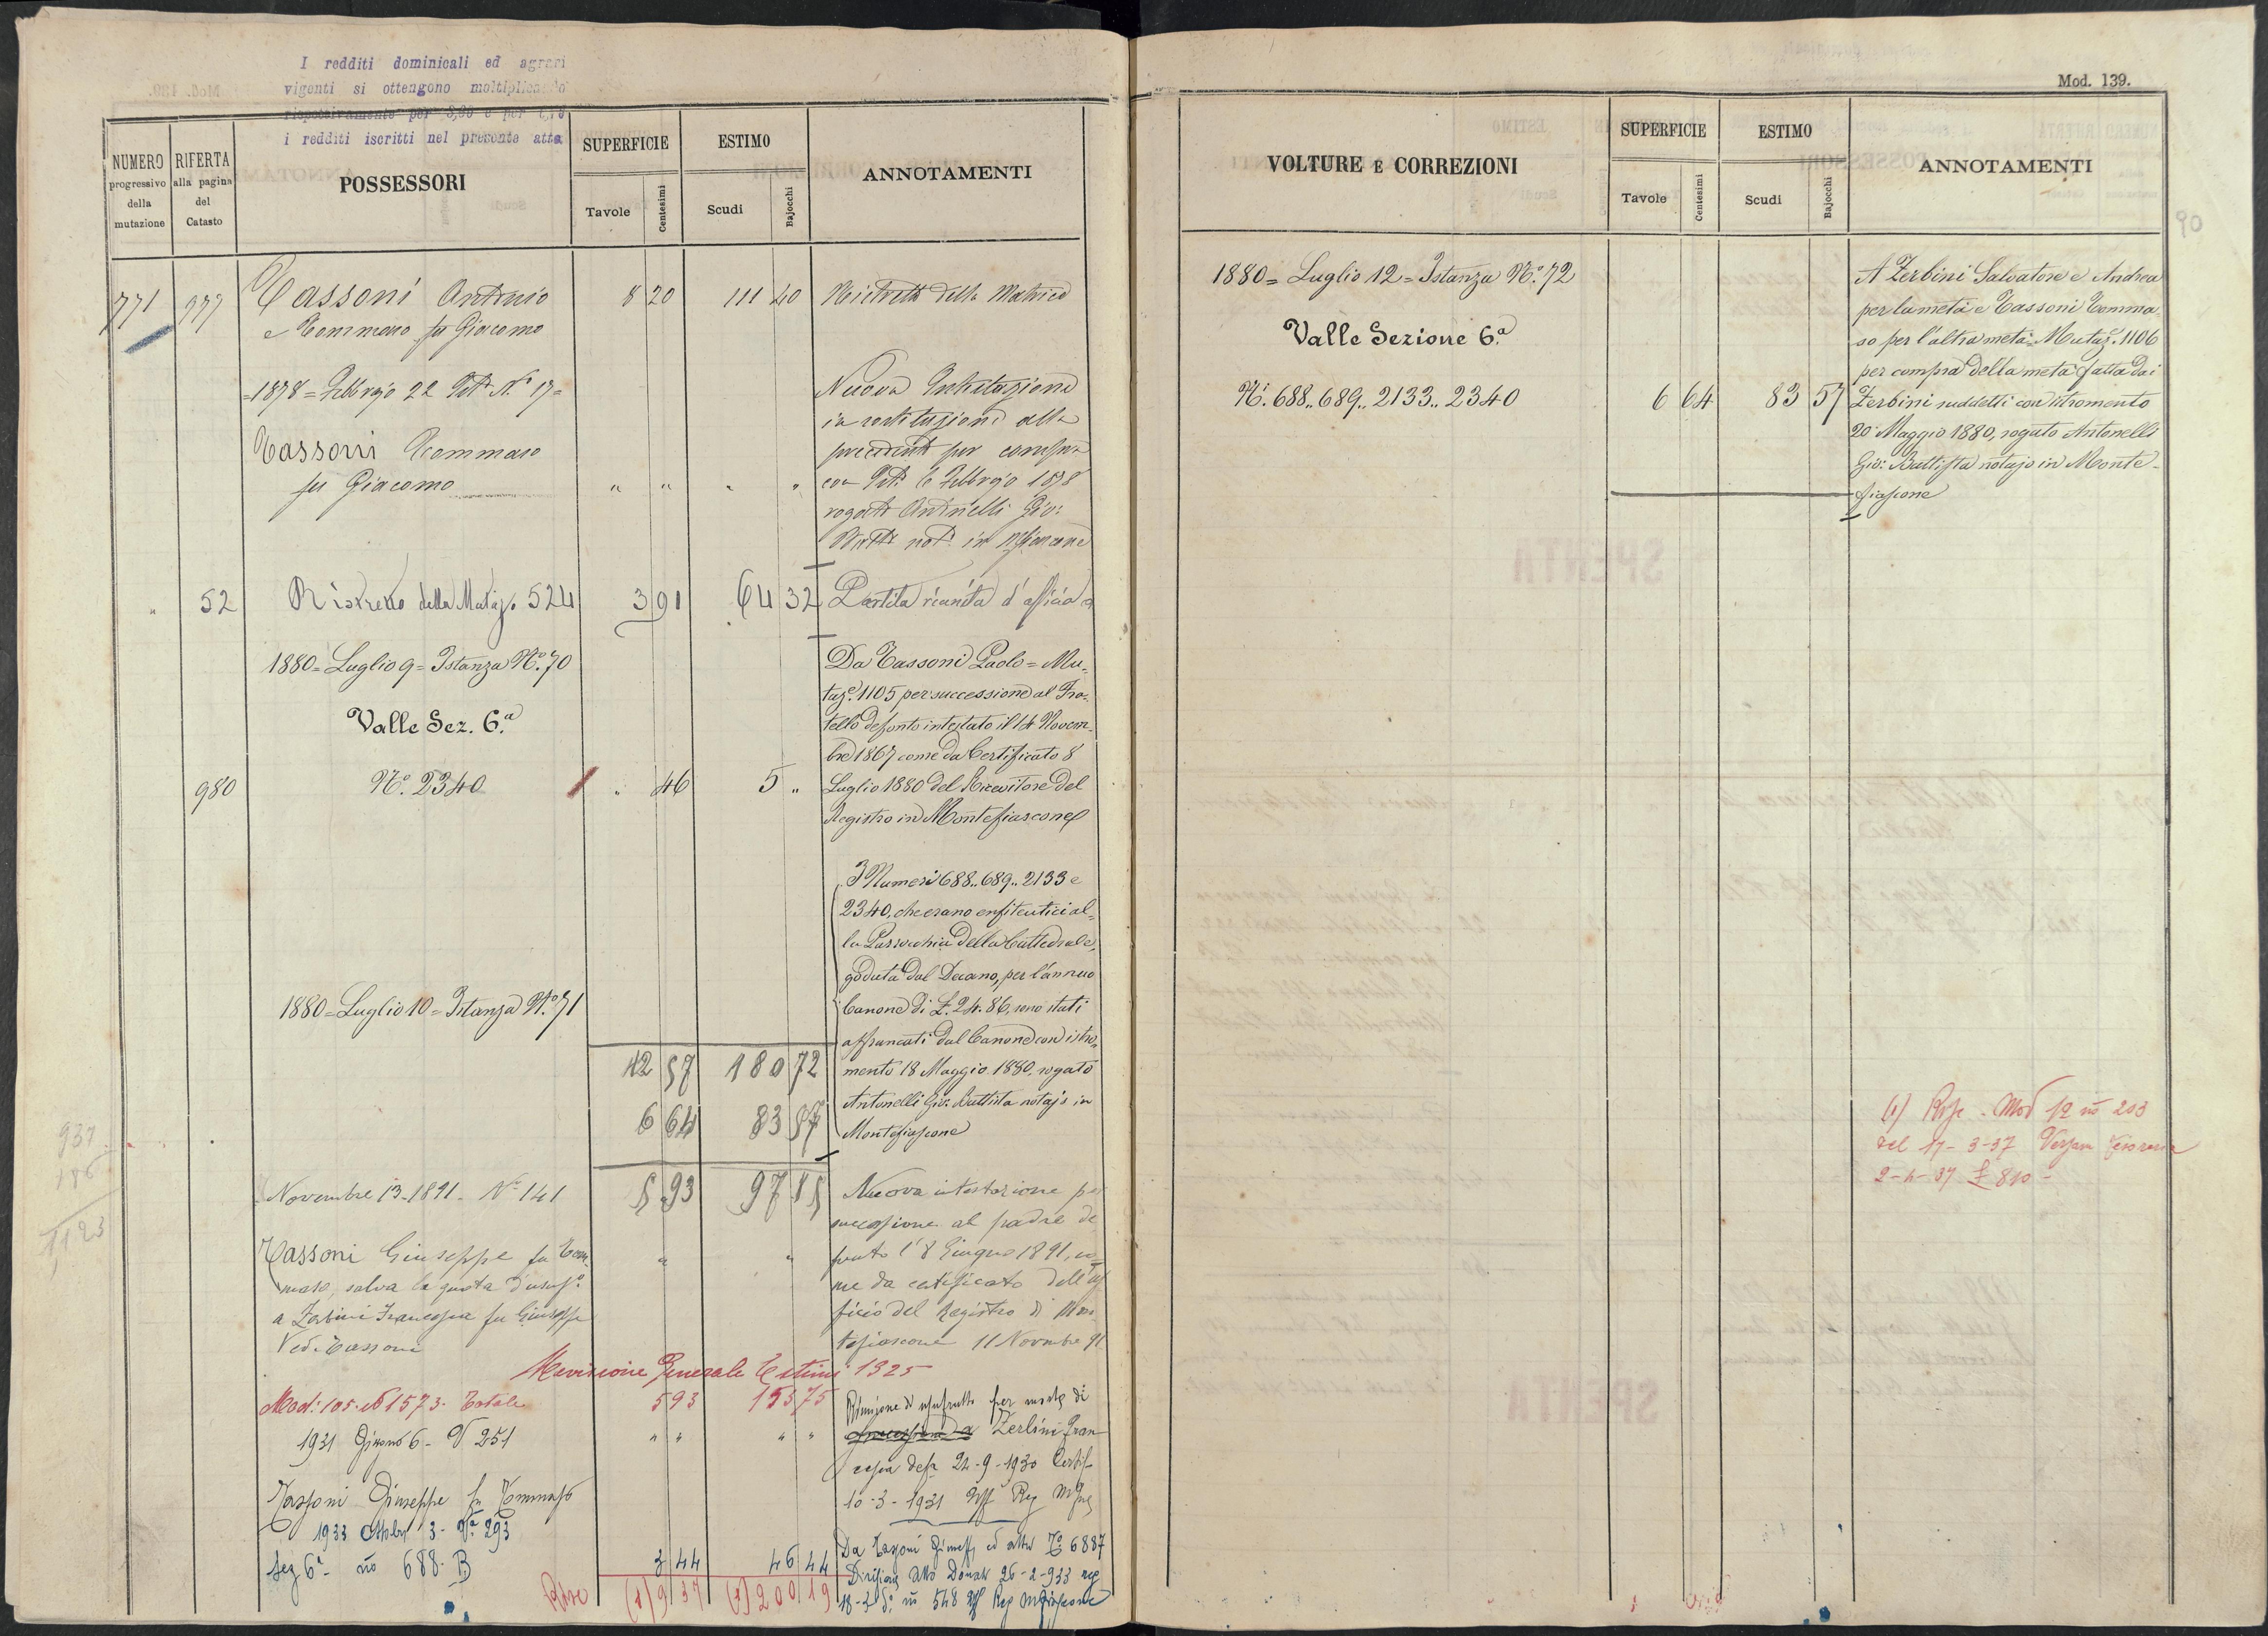 I redditi dominicali ed agrari
vigenti si ottengono moltiplicando
rispettivamente per 3,66 e per
i redditi iscritti nel presente atto
NUMERO progressivo della mutazione
RIFERTA alla pagina del Catasto
POSSESSORI
SUPERFICIE
Tavole
Centesimi
ESTIMO
Scudi
Bajocchi
ANNOTAMENTI
771 977 Tassoni Antonio 8 20 111 40 della Matrice
e Tommaso fu Giacomo
=1878= Febbrajo 22 N.º 17=
Nuova Intestazione
in sostituzione alla
Tassoni Tommaso
precedente per compra
fu Giacomo " " " "
con 6 Febbrajo 1878
rogato Antonelli Gio:
Batta not.º in Mfiascone
" 52 Ristretto della Mutaz. 524 3 91 64 32 Partita riunita d'officio
1880= Luglio 9= Istanza Nº. 70
Da Tassoni Paolo= Mu-
taz.e 1105 per successione al Fra-
Valle Sez. 6.a
tello defonto intestato il 14 Novem-
bre 1867 come da Certificato 8
980 Nº. 2340 " 46 5 " Luglio 1880 del Ricevitore del
Registro in Montefiascone
I Numeri 688.. 689.. 2133 e
2340, che erano enfiteutici al-
la Parrocchia della Cattedrale,
goduta dal Decano, per l'annuo
1880= Luglio 10= Istanza Nº. 71
Canone di L. 24. 86, sono stati
affrancati dal Canone con istro-
12 57 180 72 mento 18 Maggio 1880, rogato
Antonelli Gio: Battista notajo in
6 64 83 57 Montefiascone
937
186
1123
Novembre 13-1891- Nº 141 5 93 97 15 Nuova intestazione per
successione al padre de
Tassoni Giuseppe fu Tom- " " funto l'8 Giugno 1891, co-
maso, salva la quota d'usuf.º
me da certificato dell'Uf
a Zerbini Francesca fu Giuseppe
ficio del Registro di Mon
Ved. Tassoni
tefiascone 11 Novembre 91
Revisione Generale Estimi 1925
Mod: 105. Nº 1573. Totale 5 93 153 75
Riunione d'usufrutto per morte di
1931 Giugno 6 - V 251 " " " " Zerbini Fran
cesca def. 22-9-1930 Certif.
Tassoni Giuseppe fu Tommaso
10-3-1931 Uff Reg
1933 Ottobre 3- Vª 293
Sez 6ª- nº 688. B 3 44 46 44
Da Tassoni Giusepp ed altri 6887
Divisione atto Donati 26-2-933 reg
18-3 nº 548 Uff Reg Mfiascone
(1) 9 37 (1) 200 19
Mod. 139.
90
VOLTURE E CORREZIONI
SUPERFICIE
Tavole
Centesimi
ESTIMO
Scudi
Bajocchi
ANNOTAMENTI
1880= Luglio 12= Istanza Nº. 72
A Zerbini Salvatore e Andrea
per la metà e Tassoni Tomma
Valle Sezione 6.a
so per l'altra metà= Mutaz.e 1106
per compra della metà fatta dai
Ni. 688.. 689.. 2133.. 2340 6 64 83 57 Zerbini suddetti con istromento
20 Maggio 1880, rogato Antonelli
Gio: Battista notajo in Monte-
fiascone
(1) Mod 12 nº 203
del 17-3-37
2-4-37 £ 810-